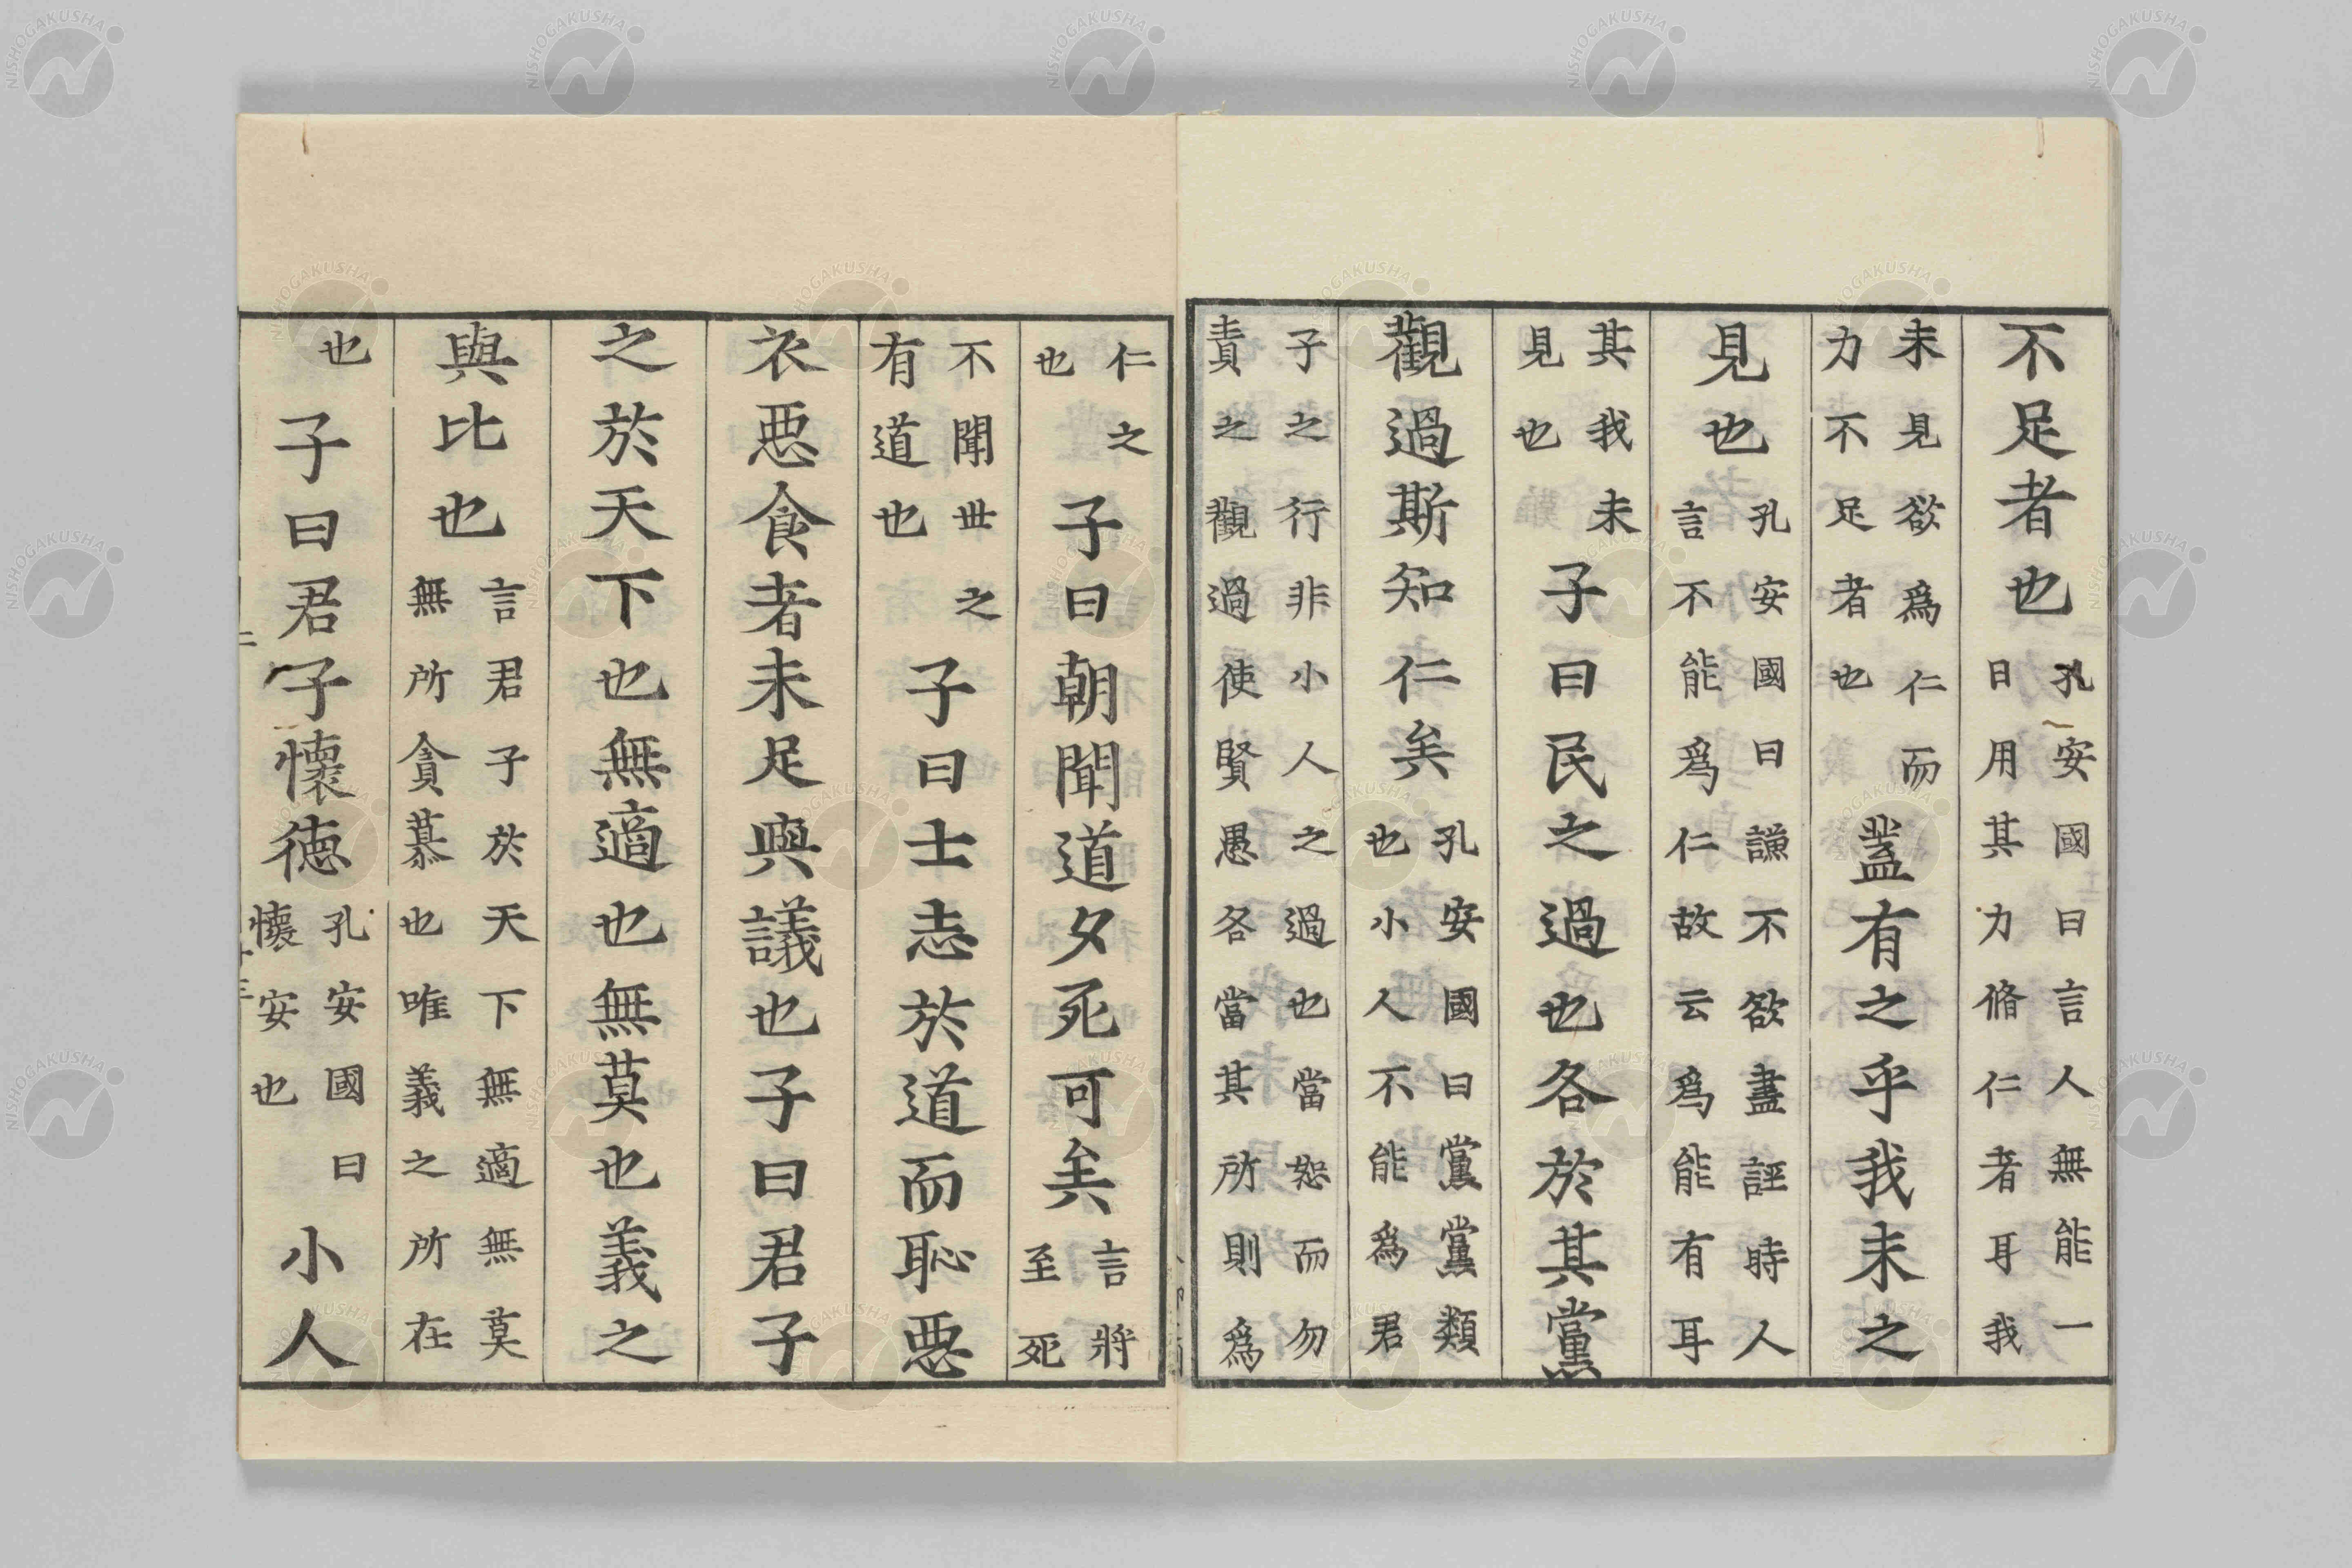 不足者也孔安國曰言人無能一日用其力脩仁者耳我
未見欲爲仁而力不足者也蓋有之乎我未之
見也孔安國曰謙不欲盡誣時人言不能爲仁故云爲能有耳
其我未見也子曰民之過也各於其黨
觀過斯知仁矣孔安國曰黨黨類也小人不能爲君
子之行非小人之過也當恕而勿責之觀過使賢愚各當其所則爲
仁之也子曰朝聞道夕死可矣言將至死
不聞丗之有道也子曰士志於道而恥悪
衣悪食者未足與議也子曰君子
之於天下也無適也無莫也義之
與比也言君子於天下無適無莫無所貪慕也唯義之所在
也子曰君子懷徳孔安國曰懷安也小人
NISHOGAKUSHA